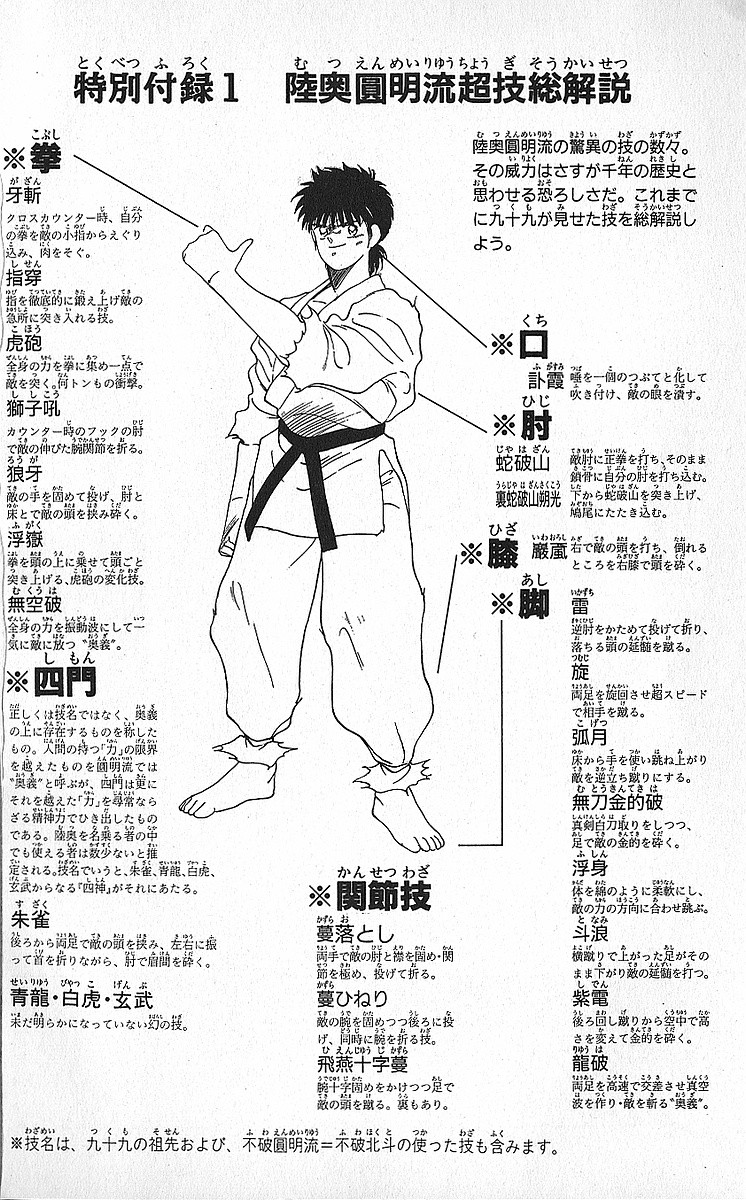 特別付録1　陸奥圓明流超技総解説
陸奥圓明流の驚異の技の数々。
その威力はさすが千年の歴史と
思わせる恐ろしさだ。これまで
に九十九が見せた技を総解説し
よう。
※拳
牙斬
クロスカウンター時、自分
の拳を敵の小指からえぐり
込み、肉をそぐ。
指穿
指を徹底的に鍛え上げ敵の
急所に突き入れる技。
虎砲
全身の力を拳に集め一点で
敵を突く。何トンもの衝撃。
獅子吼
カウンター時のフックの肘
で敵の伸びた腕関節を折る。
狼牙
敵の手を固めて投げ、肘と
床とで敵の頭を挟み砕く。
浮嶽
拳を頭の上に乗せて頭ごと
突き上げる、虎砲の変化技。
無空破
全身の力を振動波にして一
気に敵に放つ〝奥義〟。
※四門
正しくは技名ではなく、奥義
の上に存在するものを称した
もの。人間の持つ「力」の限界
を越えたものを圓明流では
〝奥義〟と呼ぶが、四門は更に
それを越えた「力」を尋常なら
ざる精神力でひき出したもの
である。陸奥を名乗る者の中
でも使える者は数少ないと推
定される。技名でいうと、朱雀、青龍、白虎、
玄武からなる『四神』がそれにあたる。
朱雀
後ろから両足で敵の頭を挟み、左右に振
って首を折りながら、肘で眉間を砕く。
青龍・白虎・玄武
未だ明らかになっていない幻の技。
※口
訃霞 唾を一個のつぶてと化して
吹き付け、敵の眼を潰す。
※肘
蛇破山 敵肘に正拳を打ち、そのまま
鎖骨に自分の肘を打ち込む。
裏蛇破山朔光 下から蛇破山を突き上げ、
鳩尾にたたき込む。
※膝 巖颪 右で敵の頭を打ち、倒れる
ところを右膝で頭を砕く。
※脚
雷
逆肘をかためて投げて折り、
落ちる頭の延髄を蹴る。
旋
両足を旋回させ超スピード
で相手を蹴る。
弧月
床から手を使い跳ね上がり
敵を逆立ち蹴りにする。
無刀金的破
真剣白刀取りをしつつ、
足で敵の金的を砕く。
浮身
体を綿のように柔軟にし、
敵の力の方向に合わせ跳ぶ。
斗浪
横蹴りで上がった足がその
まま下がり敵の延髄を打つ。
紫電
後ろ回し蹴りから空中で高
さを変えて金的を砕く。
龍破
両足を高速で交差させ真空
波を作り・敵を斬る〝奥義〟。
※関節技
蔓落とし
両手で敵の肘と襟を固め・関
節を極め、投げて折る。
蔓ひねり
敵の腕を固めつつ後ろに投
げ、同時に腕を折る技。
飛燕十字蔓
腕十字固めをかけつつ足で
敵の頭を蹴る。裏もあり。
※技名は、九十九の祖先および、不破圓明流＝不破北斗の使った技も含みます。